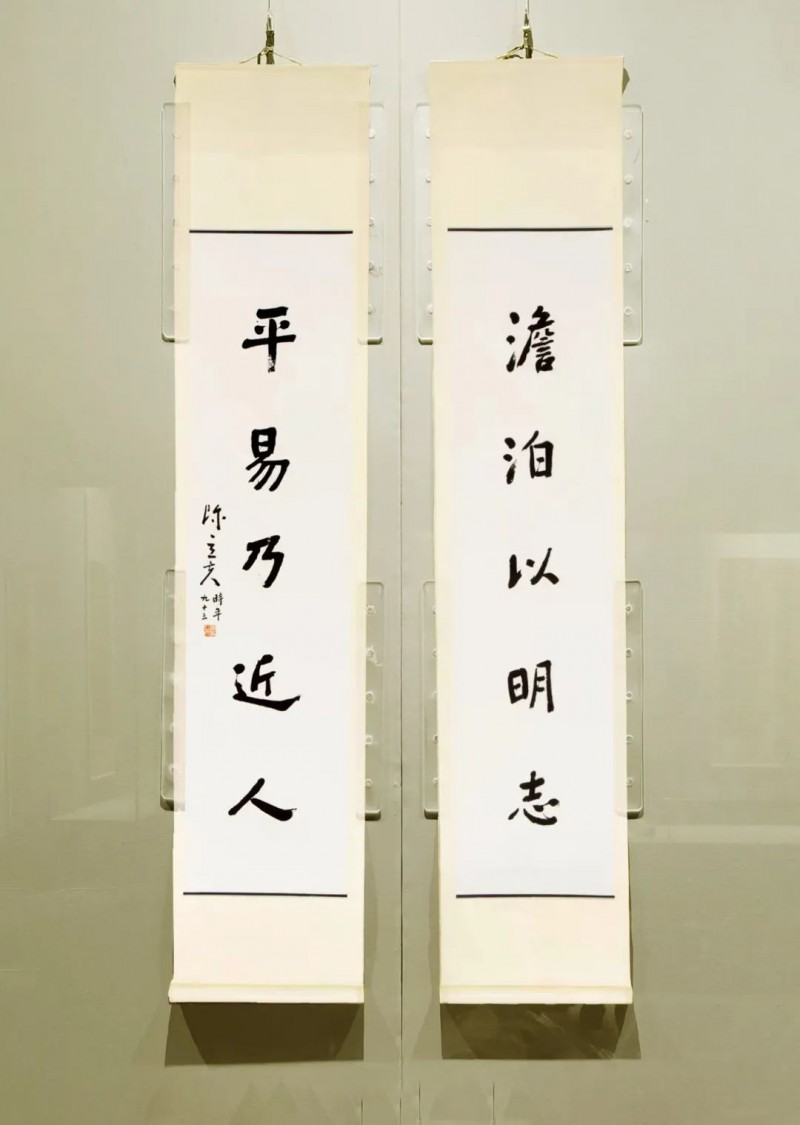 澹泊以明志
平易乃近人
陈立夫
時年
九十三